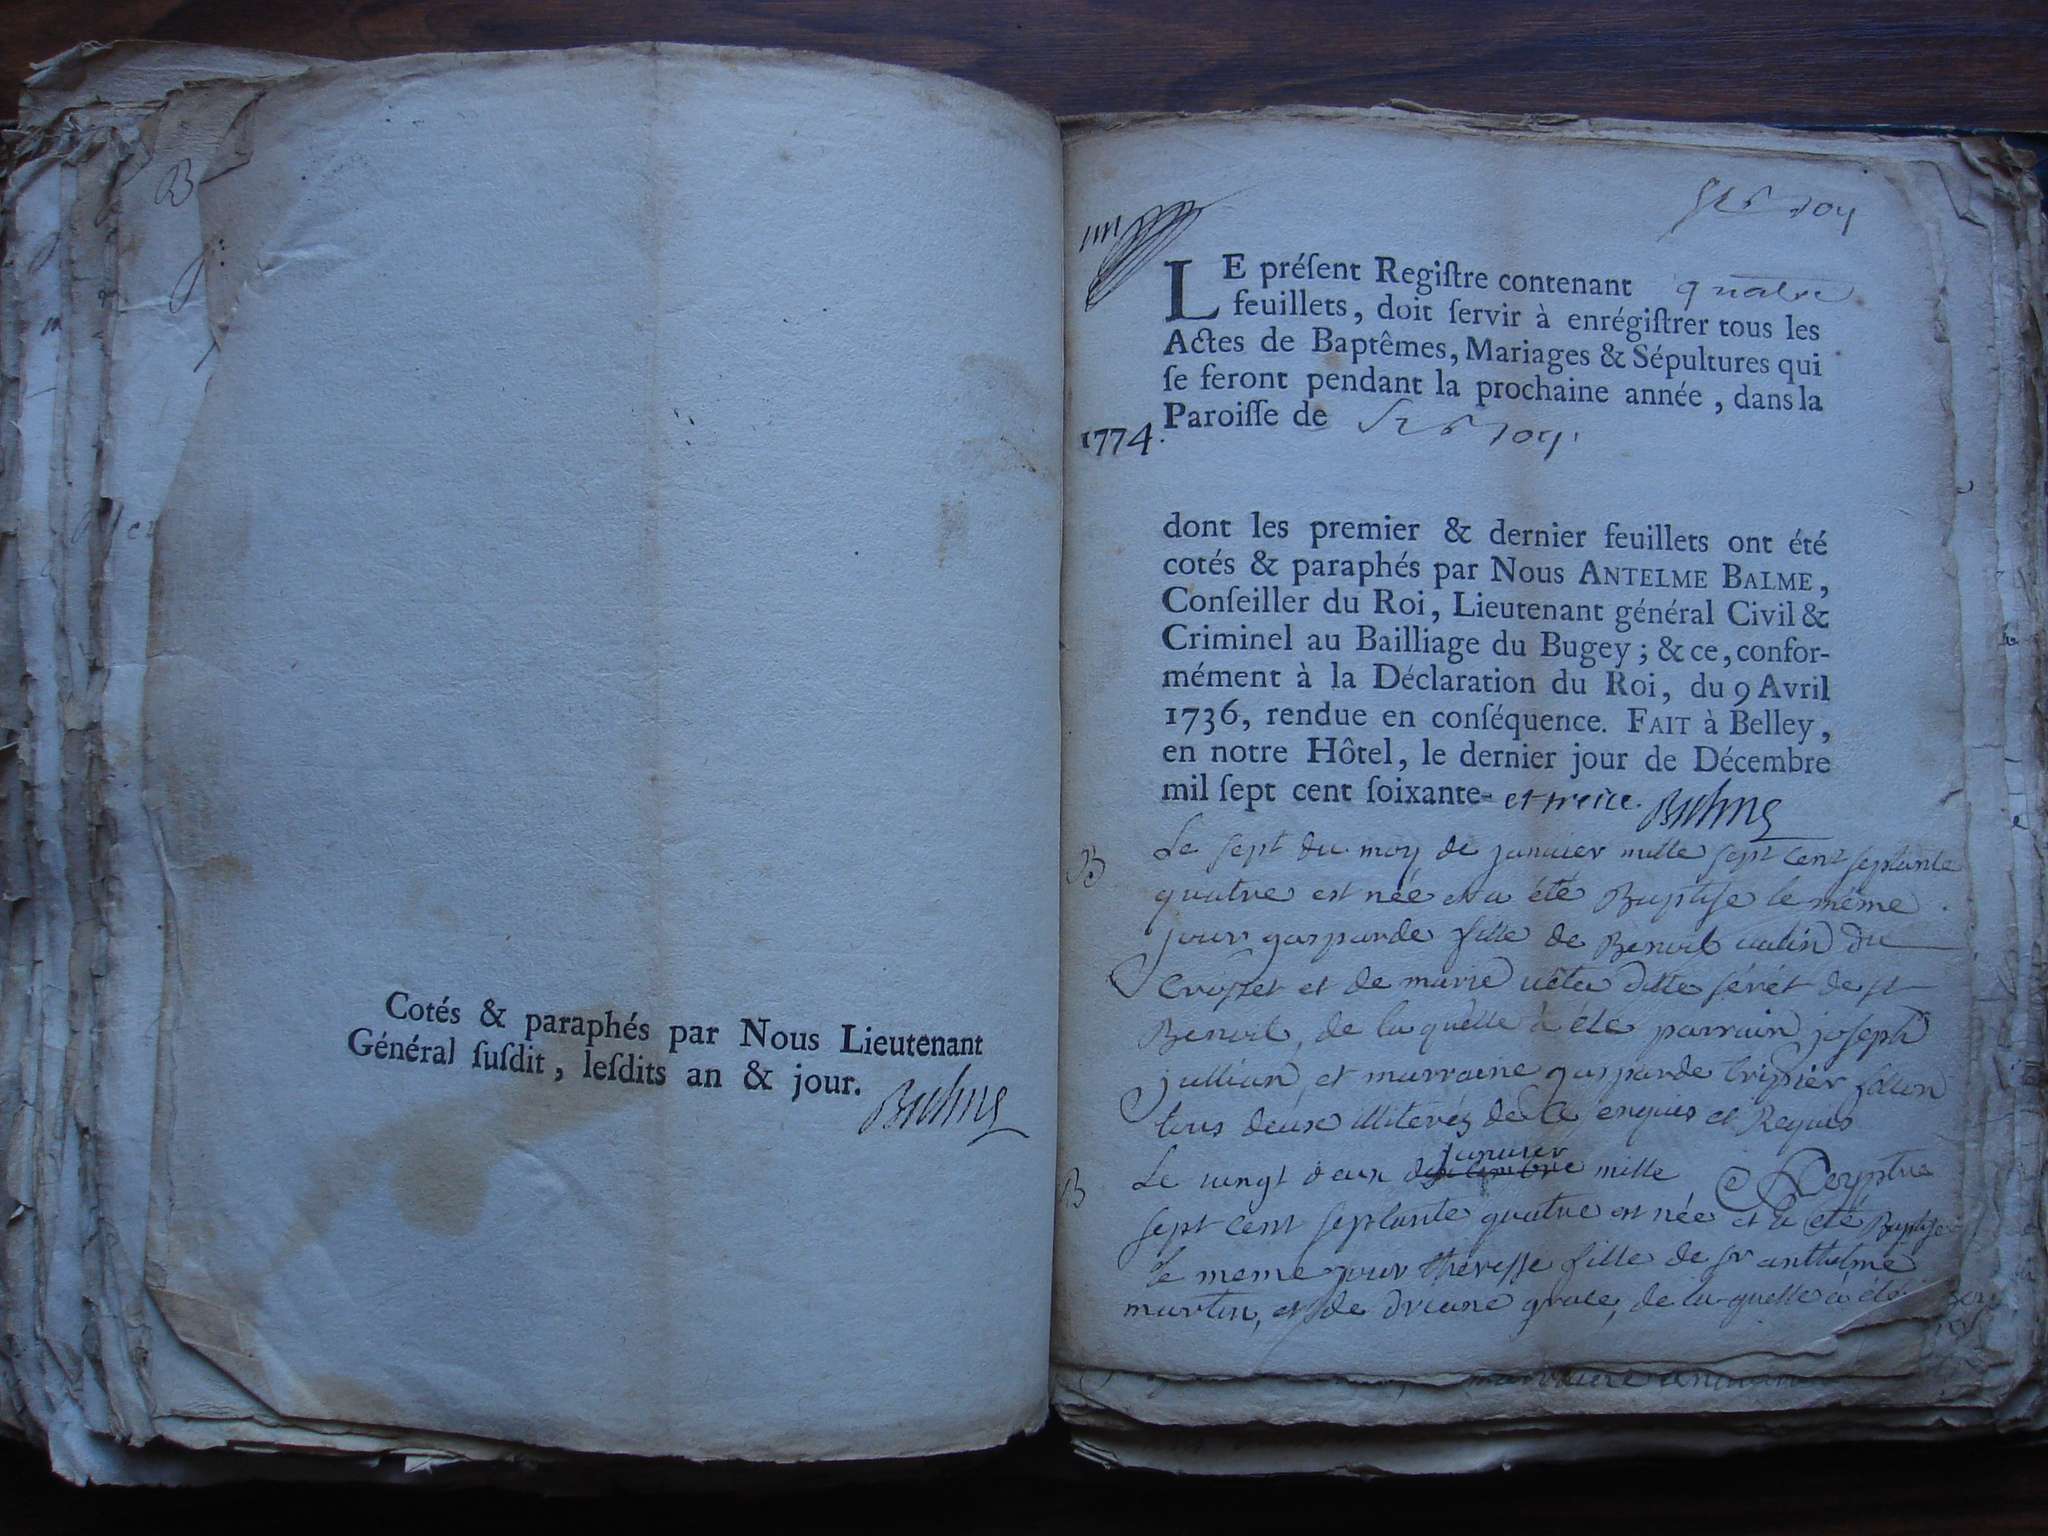 B
Cotés & paraphés par Nous Lieutenant
Général ſuſdit, leſdits an & jour.
Balme
LE préſent Regiſtre contenant quatre
feuillets, doit ſervir à enrégiſtrer tous les
Actes de Baptêmes, Mariages & Sépultures qui
ſe feront pendant la prochaine année, dans la
Paroiſſe de
1774.
dont les premier & dernier feuillets ont été
cotés & paraphés par Nous ANTELME BALME,
Conſeiller du Roi, Lieutenant général Civil &
Criminel au Bailliage du Bugey ; & ce, confor-
mément à la Déclaration du Roi, du 9 Avril
1736, rendue en conſéquence. FAIT à Belley,
en notre Hôtel, le dernier jour de Décembre
mil ſept cent ſoixante- et treize. Balme
B Le sept du moy de janvier mille sept cent septante
quatre est née et a été Baptise le même
jour gasparde fille de Benoit du
et de marie ditte de st
Benoit, de la quelle a été parrain joseph
jullian, et marraine gasparde
tous deux illiterés de ce enquis et Requis
B Le vingt deux janvier mille
sept cent septante quatre est née et a été Baptise
le meme jour theresse fille de sr anthelme
martin, et de driane grace, de la quelle a été